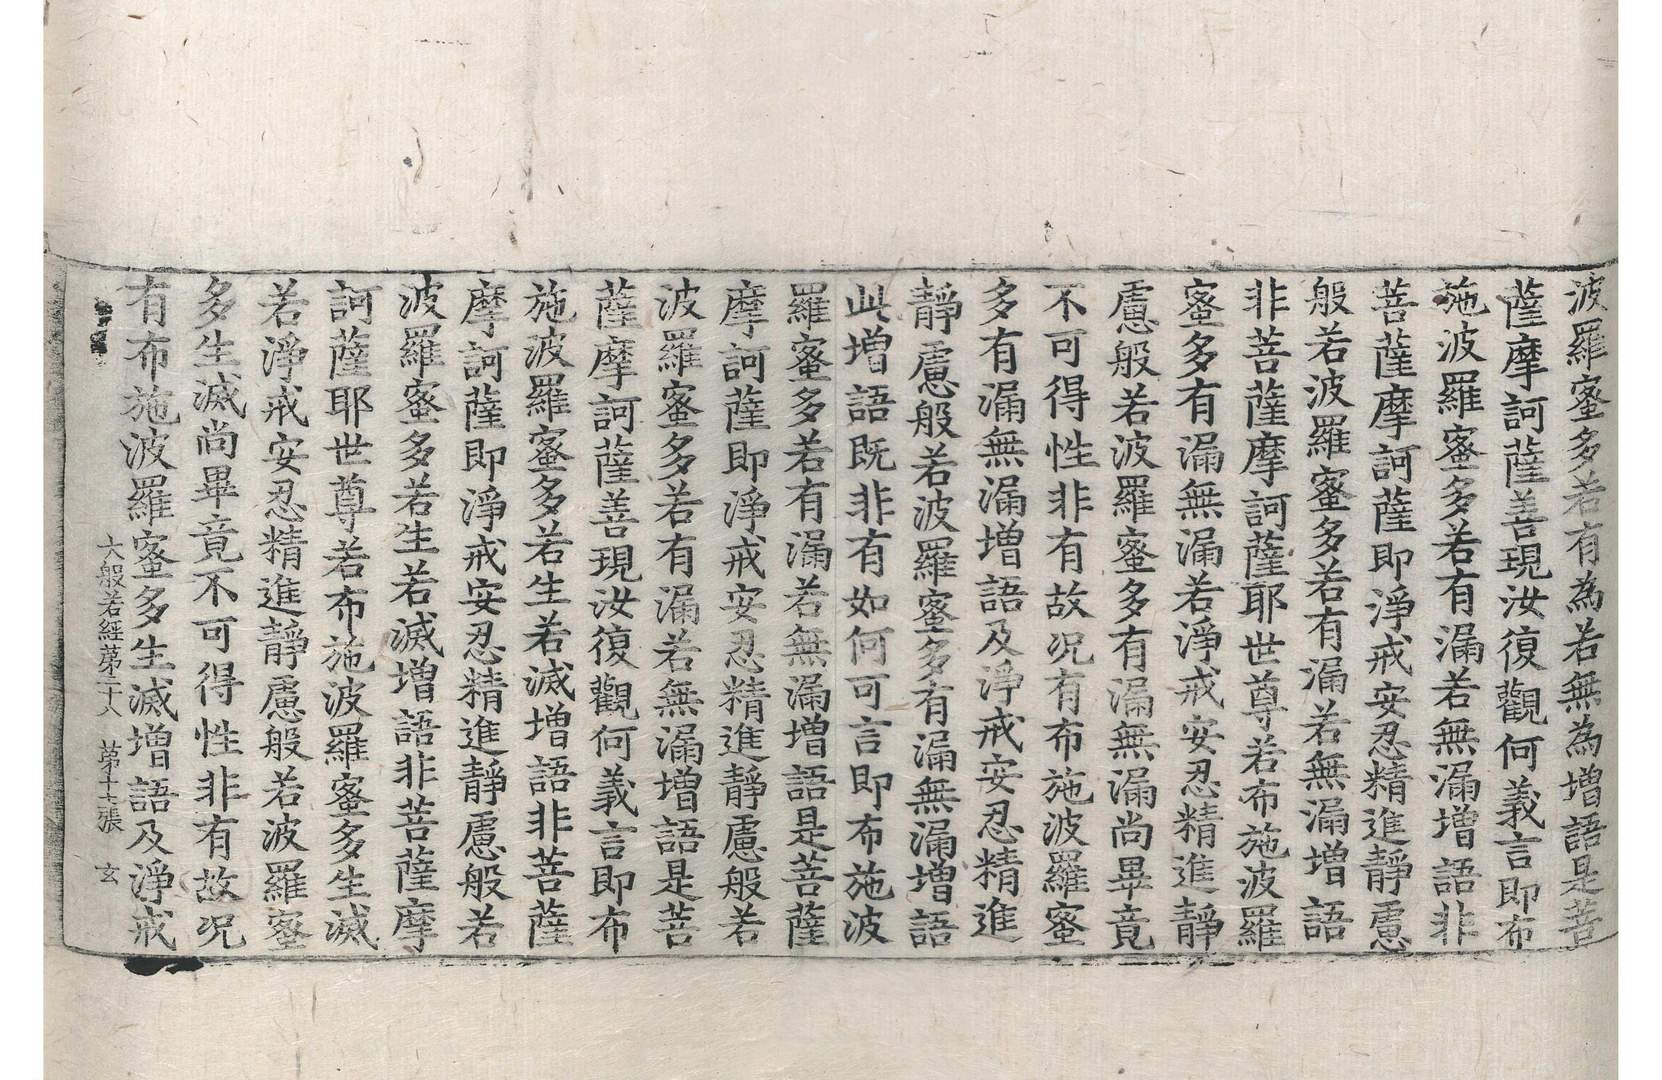 波羅蜜多若有為若無為增語是菩
薩摩訶薩善現汝復觀何義言即布
施波羅蜜多若有漏若無漏增語非
菩薩摩訶薩即淨戒安忍精進靜慮
般若波羅蜜多若有漏若無漏增語
非菩薩摩訶薩耶世尊若布施波羅
蜜多有漏無漏若淨戒安忍精進靜
慮般若波羅蜜多有漏無漏尚畢竟
不可得性非有故况有布施波羅蜜
多有漏無漏增語及淨戒安忍精進
靜慮般若波羅蜜多有漏無漏增語
此增語既非有如何可言即布施波
羅蜜多若有漏若無漏增語是菩薩
摩訶薩即淨戒安忍精進靜慮般若
波羅蜜多若有漏若無漏增語是菩
薩摩訶薩善現汝復觀何義言即布
施波羅蜜多若生若滅增語非菩薩
摩訶薩即淨戒安忍精進靜慮般若
波羅蜜多若生若滅增語非菩薩摩
訶薩耶世尊若布施波羅蜜多生滅
若淨戒安忍精進靜慮般若波羅蜜
多生滅尚畢竟不可得性非有故况
有布施波羅蜜多生滅增語及淨戒
大般若經苐二十八 苐十七張 玄